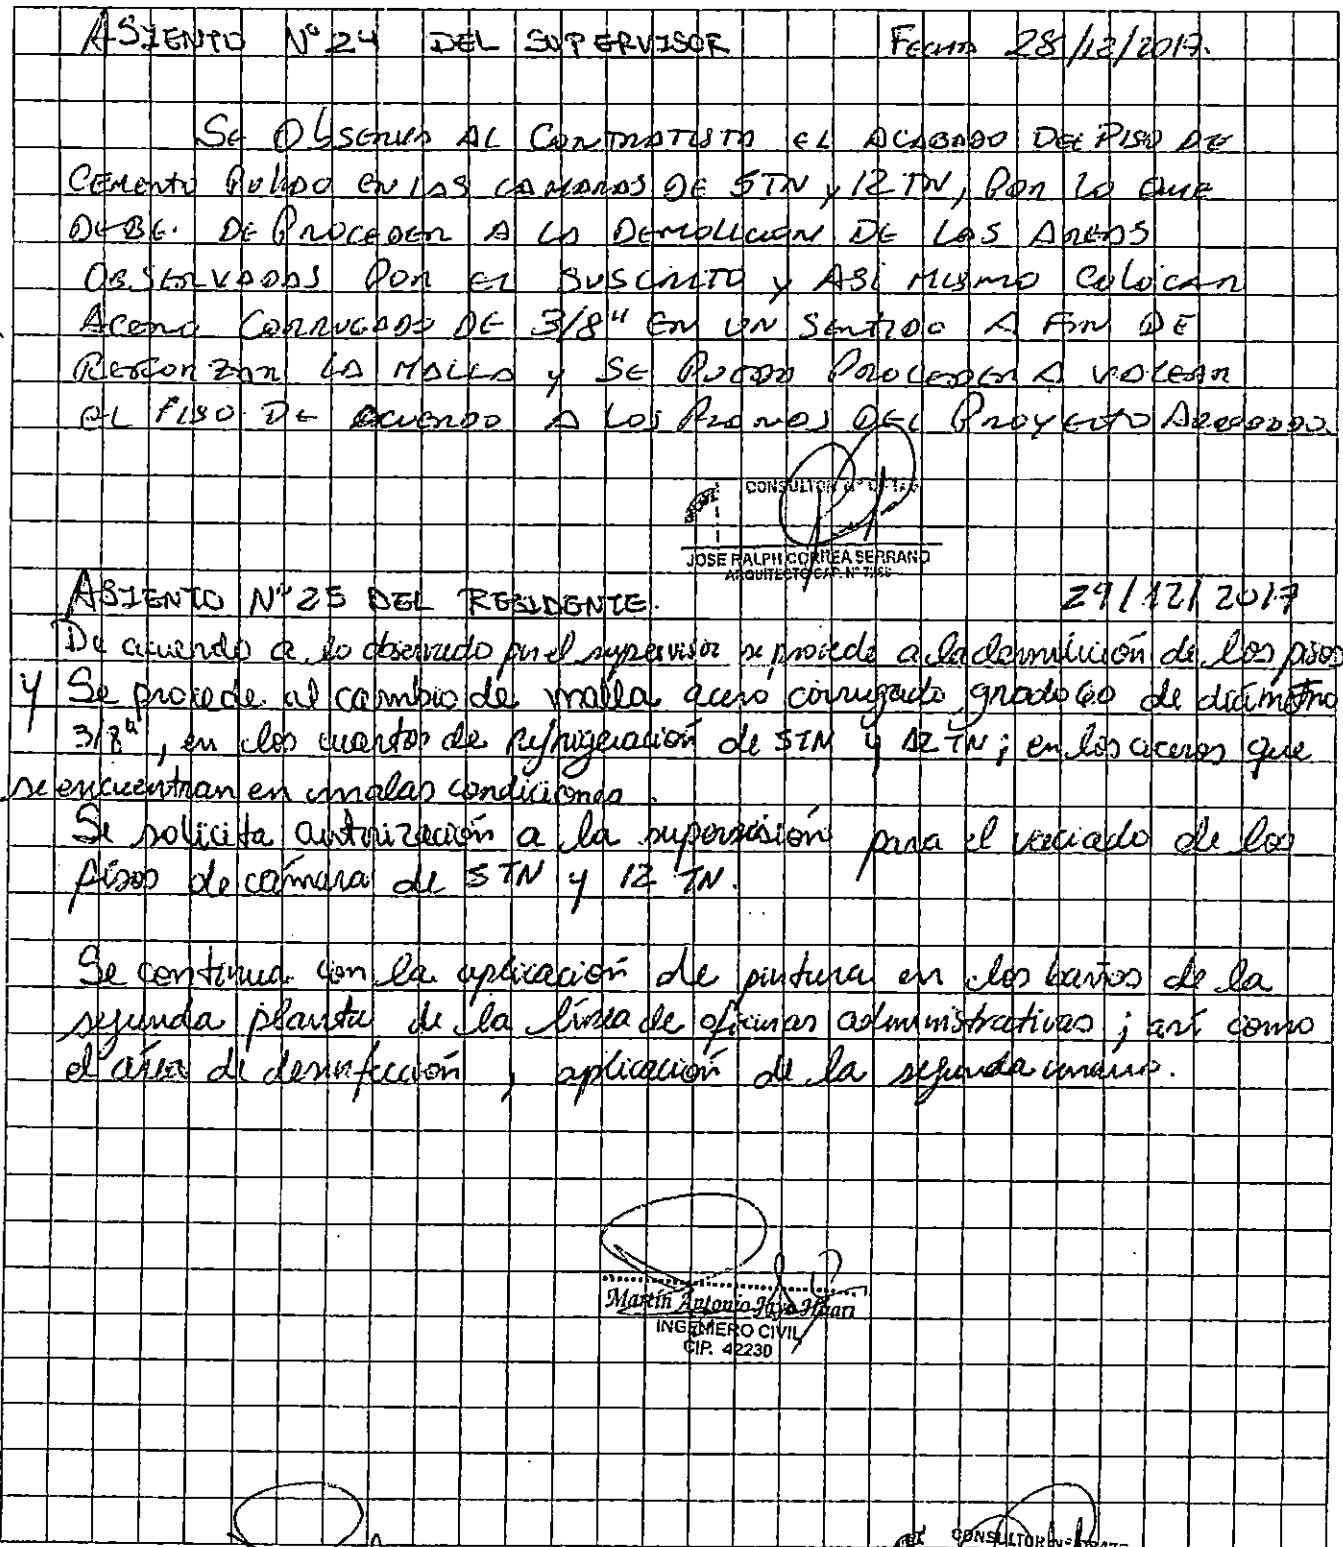 ASIENTO N° 24 DEL SUPERVISOR FECHA 28/12/2017.
SE OBSERVA AL CONTRATISTA EL ACABADO DEL PISO DE
CEMENTO PULIDO EN LAS CAMARAS DE 5TN y 12TN, POR LO QUE
DEBE. DE PROCEDER A LA DEMOLICION DE LAS AREAS
OBSERVADAS POR EL SUSCRITO y ASI MISMO COLOCAR
ACERO CORRUGADO DE 3/8" EN UN SENTIDO A FIN DE
REFORZAR LA MALLA y SE PUEDA PROCEDER A VACEAR
EL PISO DE ACUERDO A LOS PLANOS DEL PROYECTO APROBADO.
CONSULTOR N°
JOSE RALPH CORREA SERRANO
ARQUITECTO CAP. N°
ASIENTO N° 25 DEL RESIDENTE. 29/12/2017
De acuerdo a lo observado por el supervisor se procede a la demolición de los pisos
y Se procede al cambio de malla acero corrugado grado 60 de diámetro
3/8", en los cuartos de refrigeración de 5TN y 12 TN; en los aceros que
se encuentran en malas condiciones.
Se solicita autorización a la supervisión para el vaciado de los
pisos de cámara de 5TN y 12 TN.
Se continua con la aplicación de pintura en los baños de la
segunda planta de la línea de oficinas administrativas; así como
el área de desinfección, aplicación de la segunda mano.
Martín Antonio
INGENIERO CIVIL
CIP. 42230
CONSULTOR